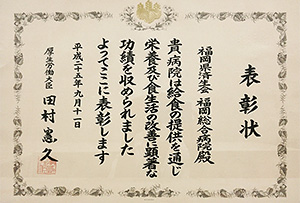 表彰状
福岡県済生会 福岡総合病院殿
貴病院は給食の提供を通じ
栄養及び食生活の改善に顕著な
功績を収められました
よってここに表彰します
平成二十五年九月十一日
厚生労働大臣 田村憲久